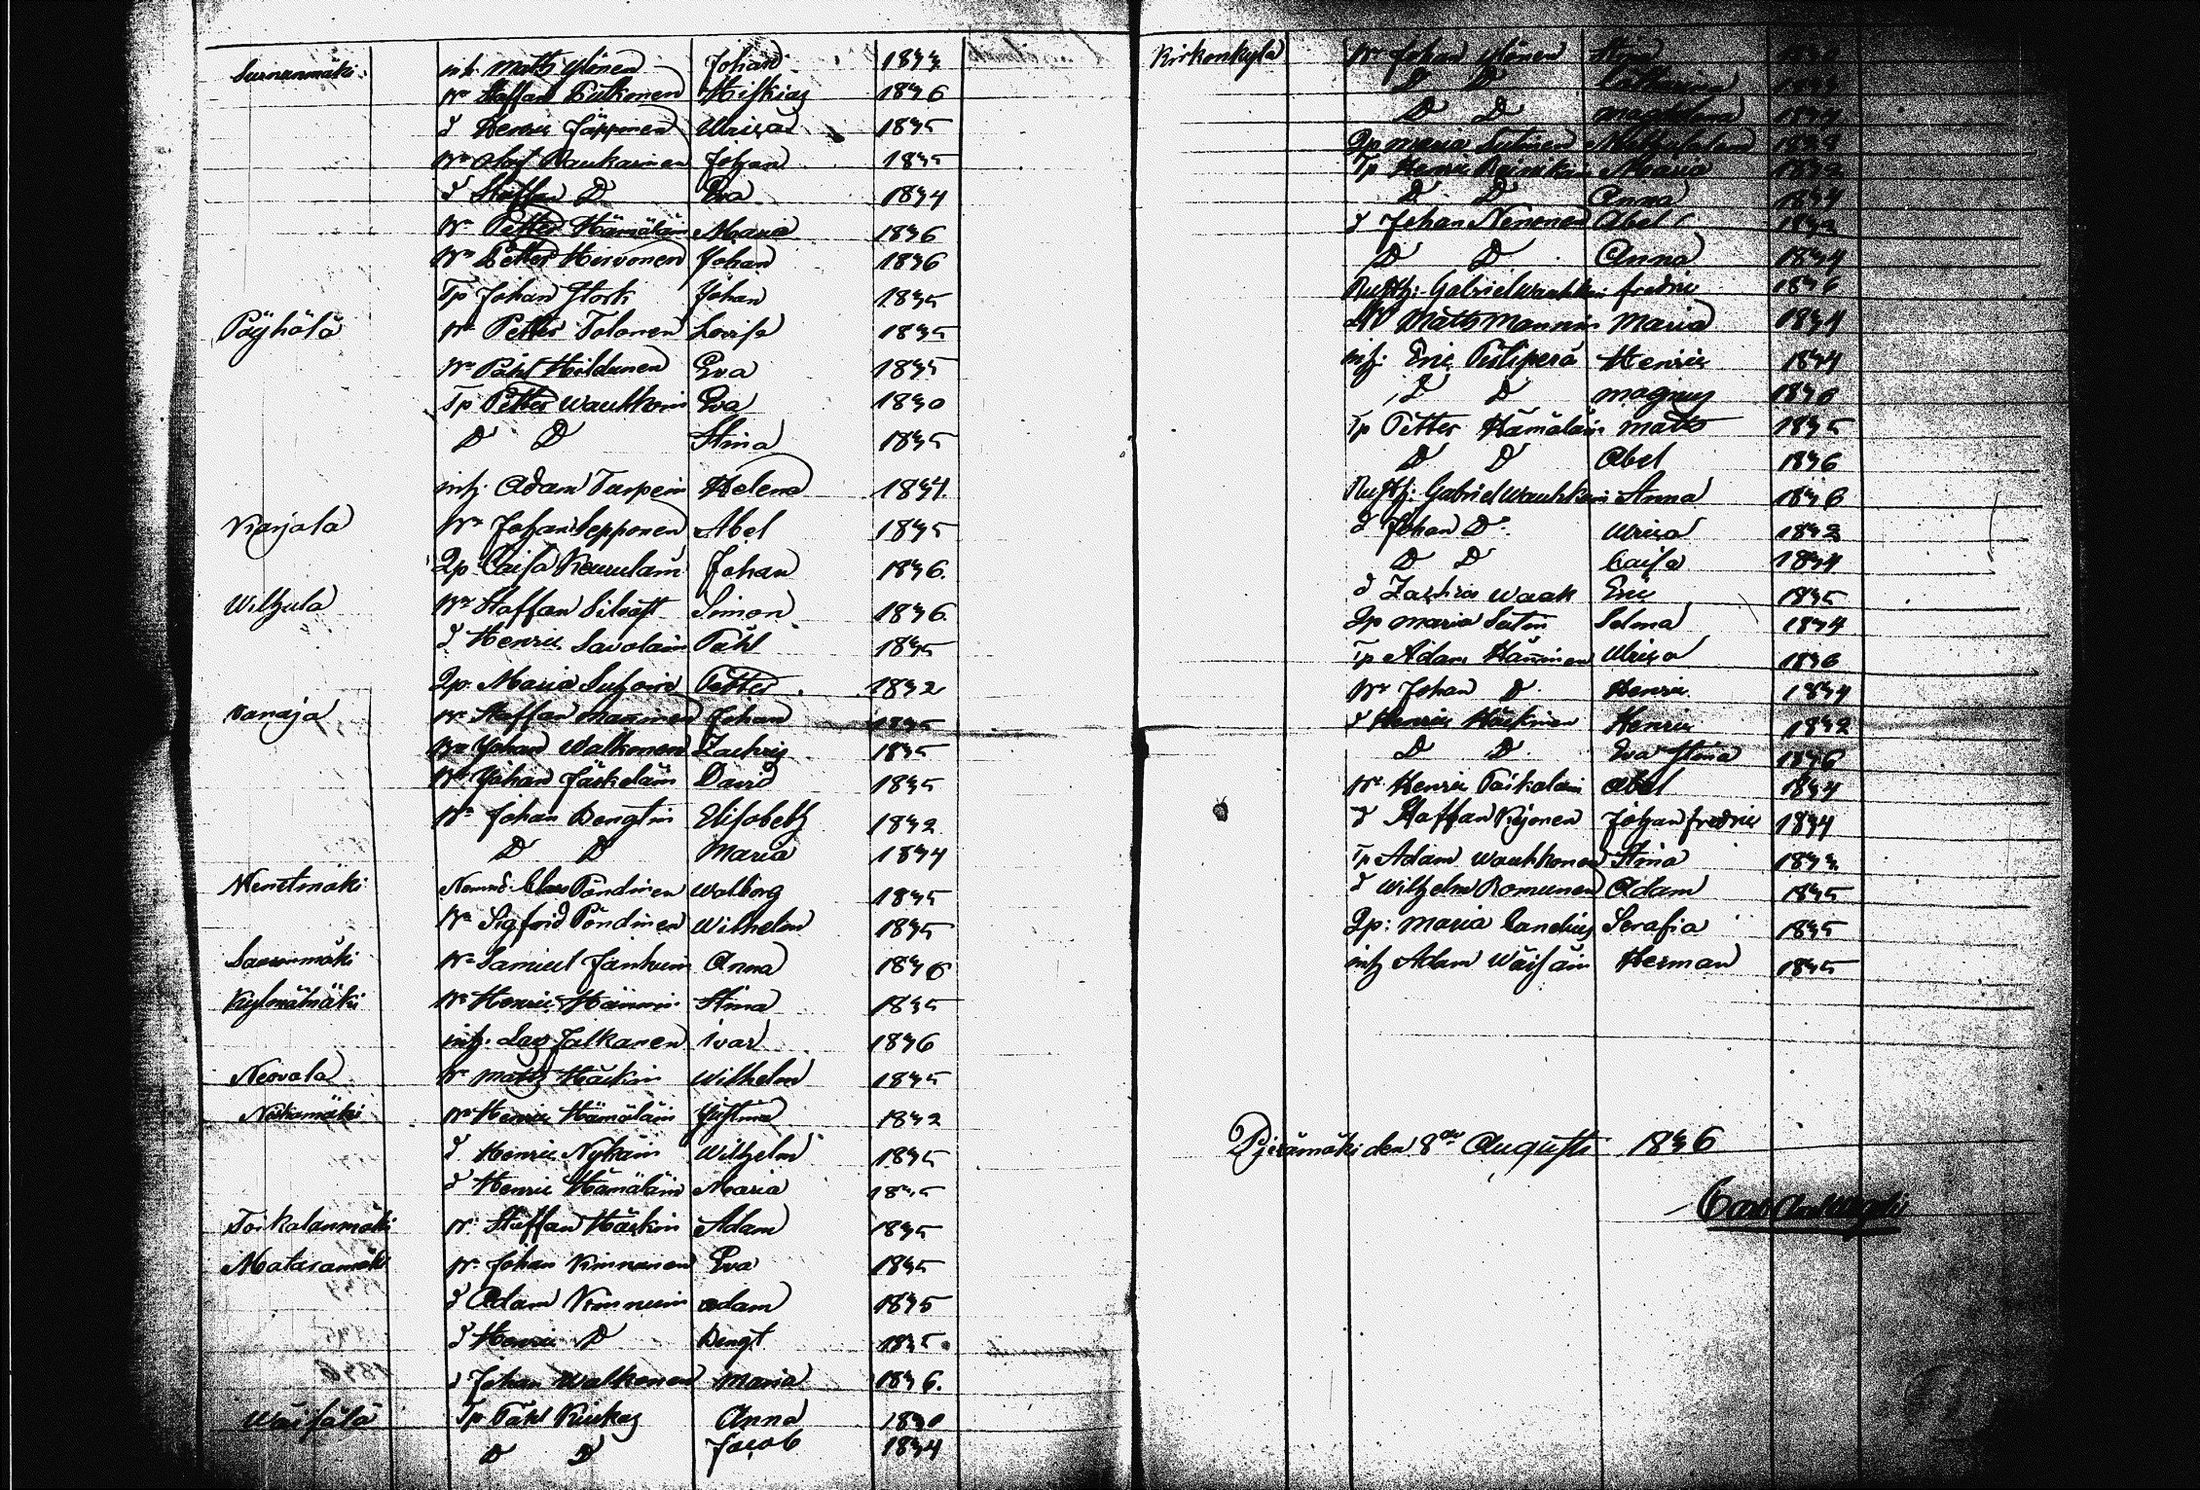 Surnunmäki inh. Matts Ylönen Johan 1833
Bn Staffan Hiskias 1836
d Henric Jäppinen Ulrica 1835
Bn Olof Raukarinen Johan 1835
d Staffan D Eva 1834
Bn Petter Hämäläin Maria 1836
Bn Petter Hirvonen Johan 1836
Tp Johan Stork Johan 1835
Päyhölä Bn Petter Tolonen Lovisa 1835
Bn Påhl Hildunen Eva 1835
Tp Petter Wauhkoin Eva 1830
D D Stina 1835
inh. Adam Turpein Helena 1834
Karjala Bn Johan Sepponen Abel 1835
Qp. Caisa Keurulain Johan 1836.
Wilhula Bn Staffan Silvast Simon 1836
d Henric Savolain Påhl 1835
Qp. Maria Petter 1832
Vanaja Bn Staffan Manninen Johan 1835
Bn Johan Walkonen Zachris 1835
Bn Johan Jäskeläin David 1835
Bn Johan Bengtin Elisabeth 1832
D D Maria 1834
Nämnd. Clas Pöndinen Walborg 1835
Bn Sigfrid Pöndinen Wilhelm 1835
Bn Samuel Janhuin Anna 1836
Bn Henric Hänninin Stina 1835
inh. Lars Jalkanen Ivar 1836
Nervala Bn Matts Häckin Wilhelm 1835
Bn Henric Hämäläin Justina 1832
d Henric Nykäin Wilhelm 1835
d Henric Hämäläin Maria 1835
Toikalanmäki Bn Staffan Häckin Adam 1835
Mataramäki Bn Johan Kinnunen Eva 1835
d Adam Kinnuin Adam 1835
d Henric D Bengt 1835
d Johan Walkonen Maria 1836.
Wäisälä Tp Påhl Kiukas Anna 1830
D D Jacob 1834
Kirkonkylä Bn Johan Ylönen Stina 1830
D D Catharina 1833
D D Magdalena 1834
Qp Maria Sutinen 1832
Tp Henric Reinikain Maria 1832
D D Anna 1834
d Johan Nenonen Abel 1832
D D Anna 1834
Rusth: Gabriel Wauhkoin Fredric 1836
Matts Mannin Maria 1834
inh: Eric Pistiperä Henric 1834
D D Magnus 1836
Tp Petter Hämäläin Matts 1835
D D Abel 1836
Rusth: Gabriel Wauhkoin Anna 1836
d Johan D Ulrica 1832
D D Caisa 1834
d Zachris Waak Eric 1835
Qp Maria Sutin Selma 1834
Tp Adam Hänninen Ulrica 1836
Bn Johan D Henric 1834
d Henric Häckinen Henric 1832
D D Eva Stina 1836
Bn Henric Toikalain Abel 1834
d Staffan Kejonen Johan Fredric 1834
Tp Adam Wauhkonen Stina 1833
d Wilhelm Romunen Adam 1835
Qp: Maria Candius Serafia 1835
inh Adam Wäisäin Herman 1835
Pjelämäki den 8de Augusti 1836